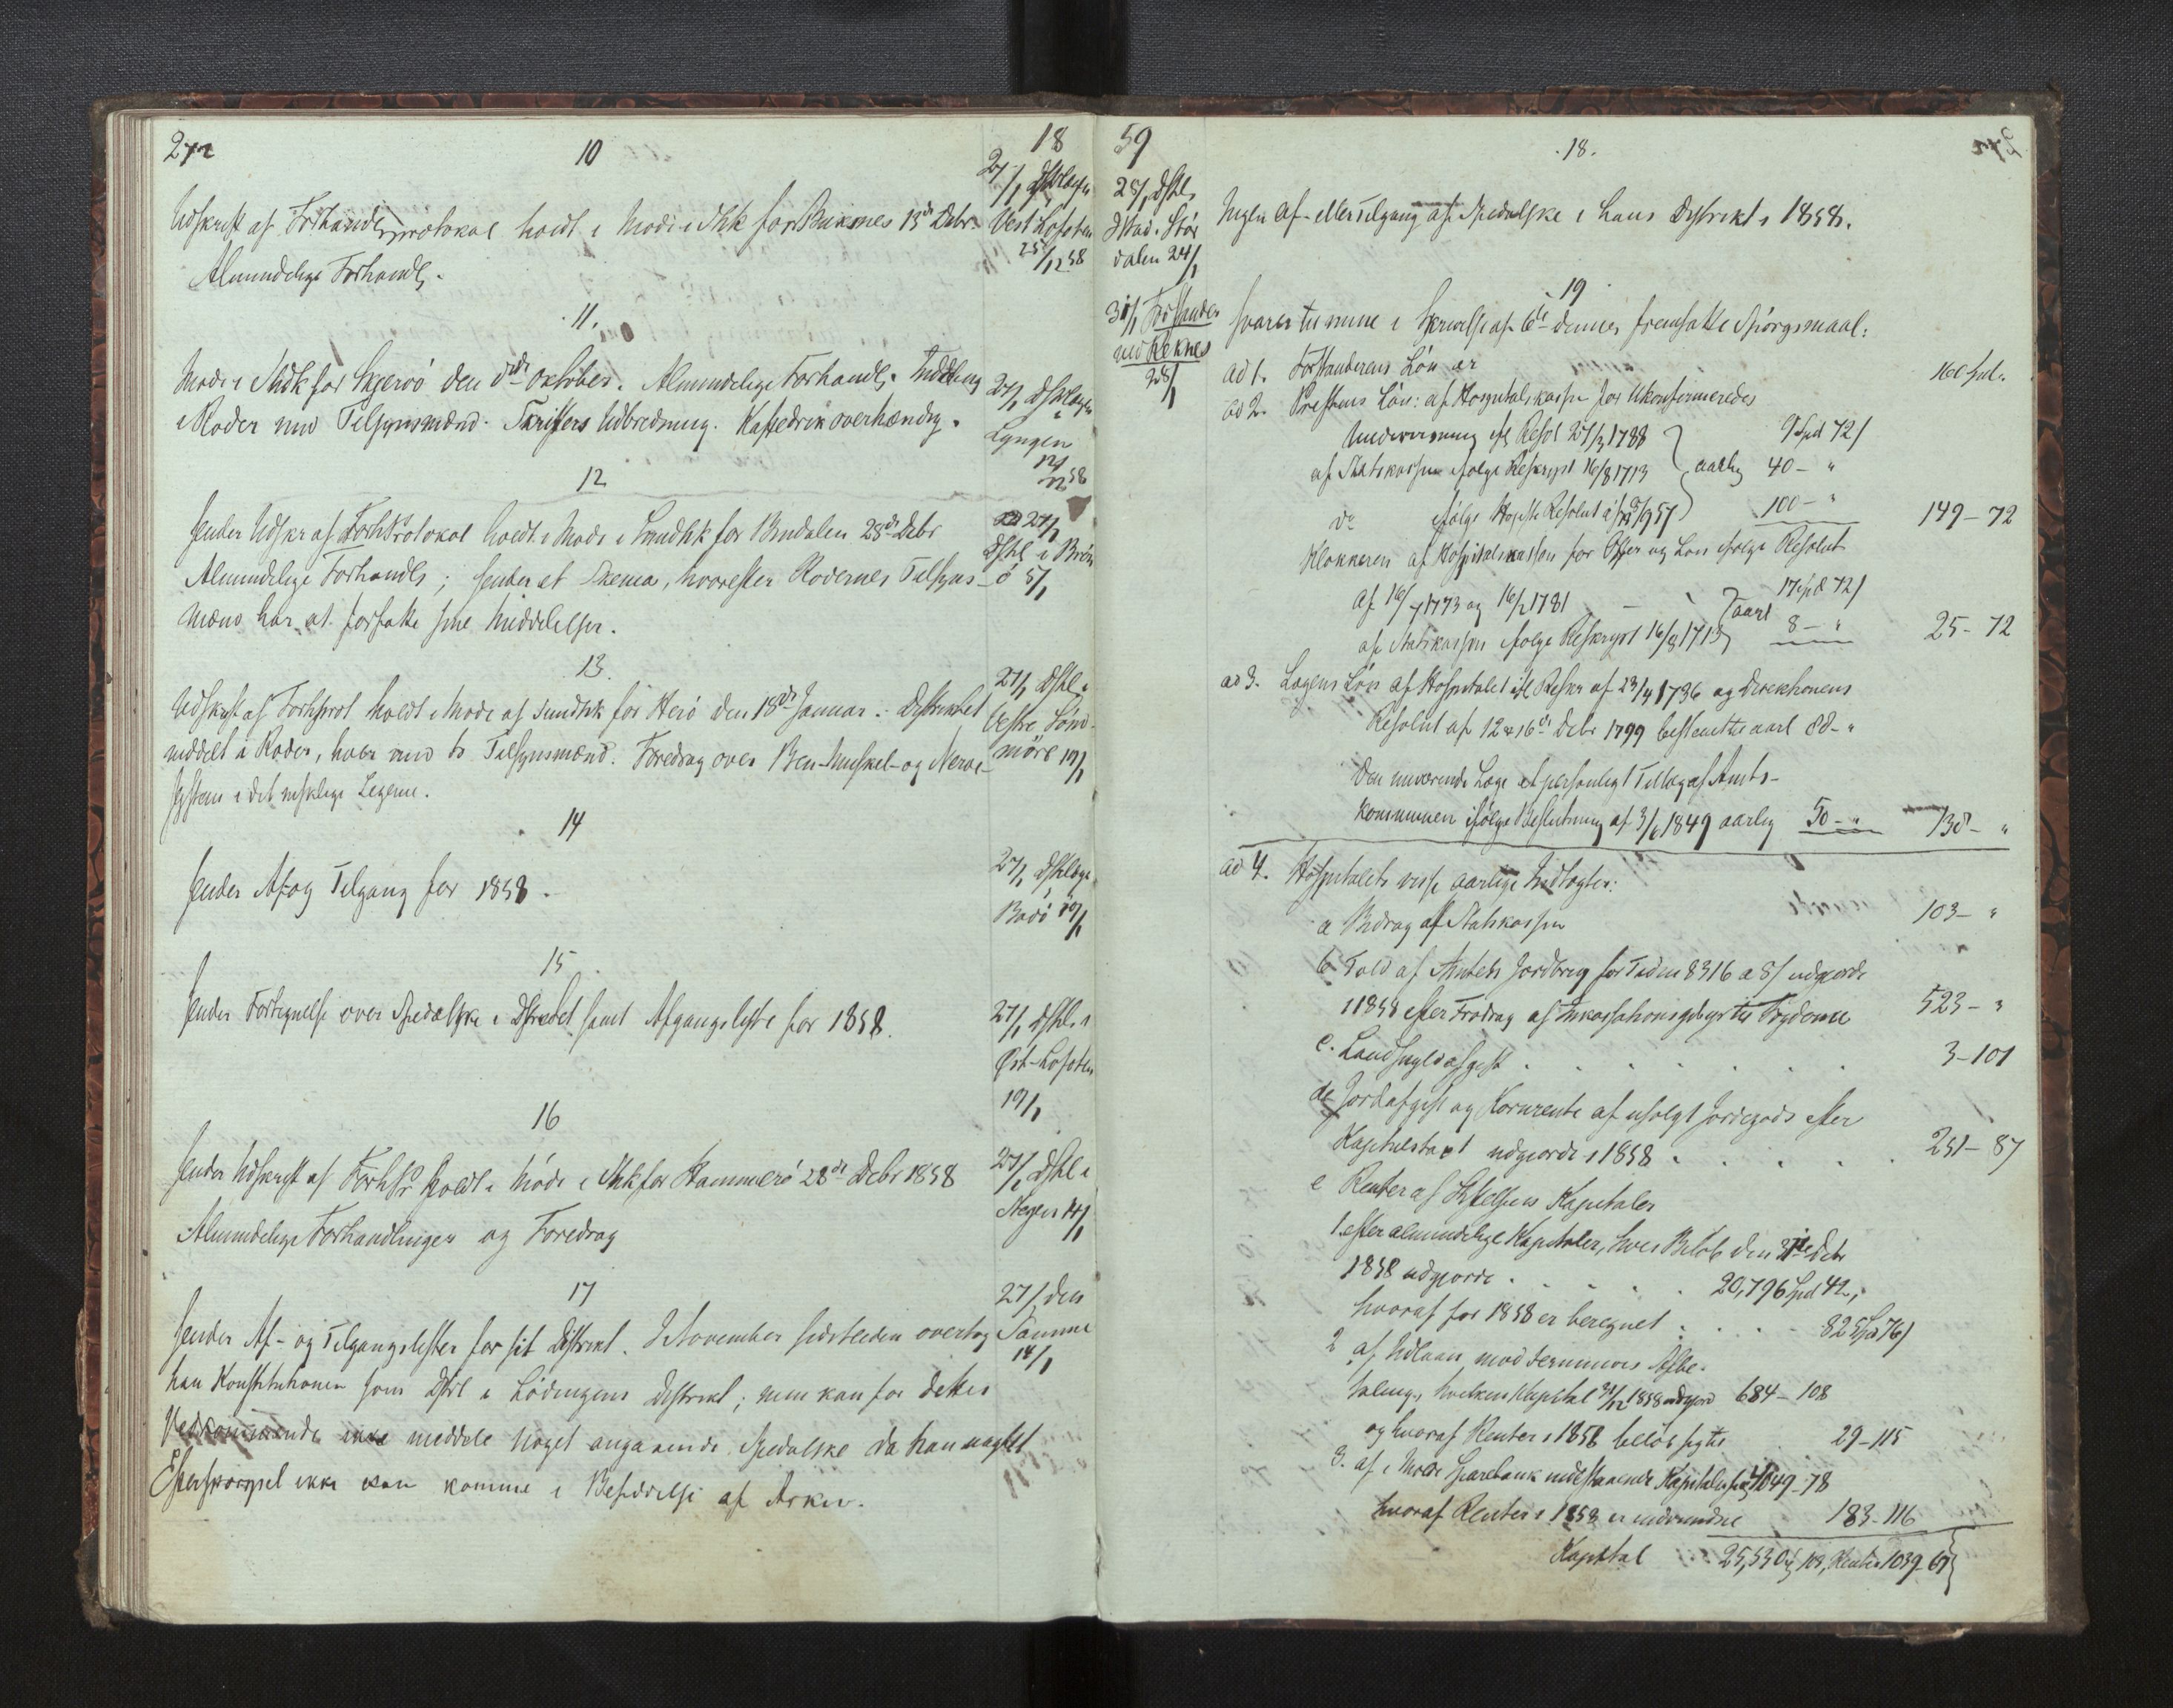 10
18
27/1 Dstrlægen
Vest-Lofoten
25/12 58
Udskrift af Forhandlsprotokol holdt i Mode i Shk for Buksnes 13de Debr
Almindelige Forhandl.
11.
27/1 Dstrlægen
Lyngen
58
Mode i Shdk for Skjervö den Oktober. Almindelige Forhandl. Inddeling
i Roder med Tilsynsmænd. Skrifters Udbredning. Kaffedrik overhændig.
12
27/1
Dstrl i Brön
ö 5/1
Sender Udskr af ForhProtokol holdt i Mode i Sundhk for Bindalen 28de Debr
Almindelige Forhandls; sender et Skema, hvorefter Rodernes Tilsyns-
mænd har at forfatte sine Meddelelser.
13.
27/1 Dstrl i
Vestre Sönd
möre 19/1
Udskrift af Forhprot holdt i Mode af Sundhk for Herö den 18de Januar. Distriktet
inddelt i Roder, hver med to Tilsynsmænd. Foredrag over Ben-Muskel- og Nerve-
system i det msklige Legeme.
14
27/1 Dstrlæge
Bodö 19/1
Sender Af- og Tilgang for 1858.
15
27/1 Dstrl. i
Øst-Lofoten
19/1
Sender Fortegnelse over Spedalske i Dstriktet samt Afgangsliste for 1858.
16
27/1 Dstrl i
Stegen 14/1
Sender Udskrift af Forhpr holdt i Möde i Shk for Hammerö 28de Debr 1858
Almindelige Forhandlinger og Foredrag
17
27/1 den
Samme
14/1
Sender Af- og Tilgangslister for sit Distrikt. I November sidstleden overtog
han Konstitutionen som Dstrl i Lödingens Distrikt; men kan for dettes
Vedkommende ikke meddele Noget angaaende Spedalske da han uagtet
Efterspörgsel ikke kan komme i Besiddelse af Arkiv.
59
.18.
28/1 Dstrl.
Dstad i Stör
dalen 24/1
Ingen Af- eller Tilgang af Spedalske i hans Distrikt i 1858.
19
31/1 Forstander
ved Reknes
28/1
Svarer til mine i Skrivelse af 6te dennes fremsatte Spörgsmaal:
ad 1. Forstanderens Lön er 160 Spd.
ad 2. Prestens Lön: af Hospitalskassen for Ukonfirmeredes
Underviisning ifl Resol 27/3 1788 9 Spd 72/
af Statskassen ifolge Reskript 16/8 1713 aarlig 40 - "
do ifölge Höjeste Resolut af 57 100 - " 149 - 72
Klokkeren af Hospitalskassen for Offer og Lön ifolge Resolut
af 16/7 1773 og 16/2 1781 17 Spd 72/
af Statskassen ifolge Reskript 16/8 1713 aarl 8 - " 25 - 72
ad 3. Lægens Lön af Hospitalet ifl Reskr af 23/4 1736 og Direktionens
Resolut af 12 & 16de Debr 1799 bestemt til aarl 88 - "
Den nuværende Læge et personligt Tillæg af Amts-
kommunen ifölge Beslutning af 3/6 1849 aarlig 50 - " 138 - "
ad 4. Hospitalets visse aarlige Indtægter:
a Bidrag af Statskassen 103 - "
b Told af Amtets Jordbrug for Tiden 8316 a 8/ udgjorde
i 1858 efter Fradrag af Inkassationsgebyr til Fogderne 523 - "
c. Landskyldafgift . . . . . . . 3 - 101
d Jordafgift og Kornrente af usolgt Jordegods efter
Kapitelstaxt udgjorde i 1858 . . . . . 251 - 87
e Renter af Stiftelsens Kapitaler
1. efter almindelige Kapitaler, hvis Belöb den 31te Debr
1858 udgjorde . . . . . 20,796 Spd 42,
hvoraf for 1858 er beregnet . . . . 825 Spd 76/
2 af Udlaan mod terminvis Afbe-
taling, hvilken Kapital 31/12 1858 udgjord 684 - 108
og hvoraf Renter i 1858 belöb sig til 29 - 115
3. af i Molde Sparebank indestaaende Kapitaler 4049 - 78
hvoraf Renter i 1858 er indvundne 183 - 116
Kapital 25,530 108, Renter 1039 - 67